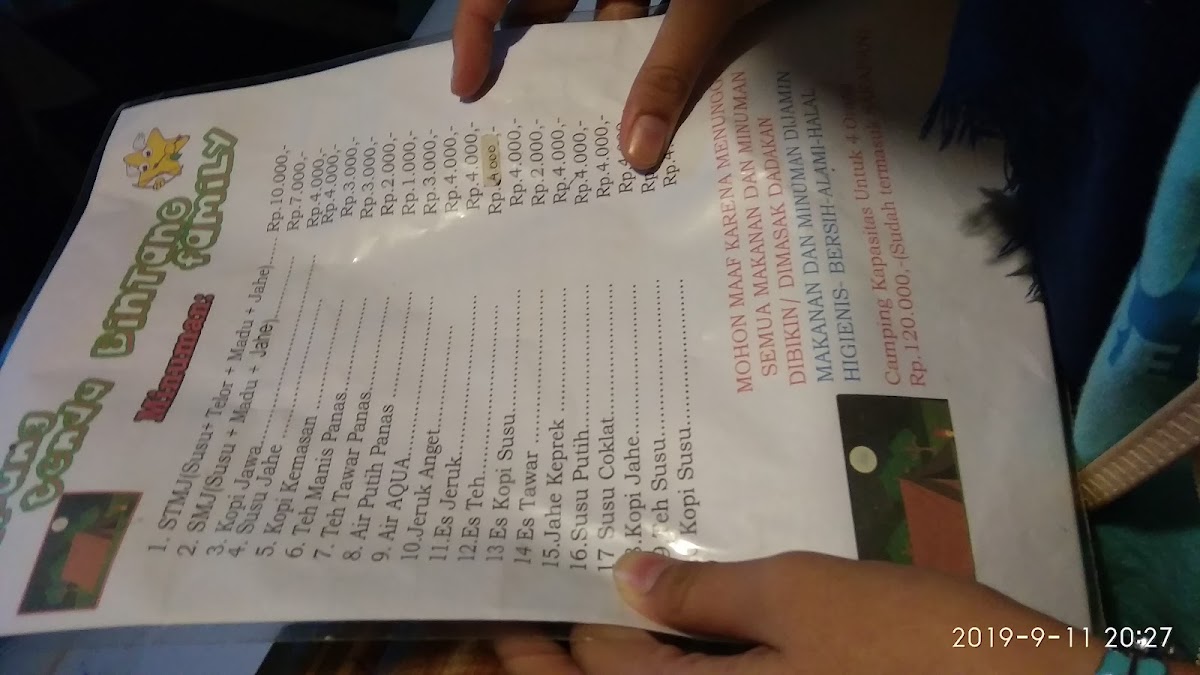 Bintang
family
Minuman:
1. STMJ/(Susu+Telor + Madu + Jahe)..... Rp.10.000,-
2. SMJ/(Susu + Madu + Jahe)............... Rp.7.000,-
3. Kopi Jawa................................ Rp.4.000,-
4. Susu Jahe ................................ Rp.4.000,-
5. Kopi Kemasan ........................ Rp.3.000,-
6. Teh Manis Panas.................... Rp.3.000,-
7. Teh Tawar Panas.................... Rp.2.000,-
8. Air Putih Panas ..................... Rp.1.000,-
9. Air AQUA............................... Rp.3.000,-
10.Jeruk Anget........................... Rp.4.000,-
11.Es Jeruk................................ Rp.4 000,-
12.Es Teh................................... Rp.4000,-
13 Es Kopi Susu ........................ Rp.4.000,-
14 Es Tawar .............................. Rp.2.000,-
15.Jahe Keprek .......................... Rp.4.000,-
16.Susu Putih............................. Rp.4.000,-
17 Susu Coklat........................... Rp.4.000,-
Kopi Jahe............................... Rp.4
Teh Susu................................ Rp
Kopi Susu............................... Rp.4
MOHON MAAF KARENA MENUNGG
SEMUA MAKANAN DAN MINUMAN
DIBIKIN/ DIMASAK DADAKAN
MAKANAN DAN MINUMAN DIJAMIN
HIGIENIS- BERSIH-ALAMI-HALAL
Camping Kapasitas Untuk 4 Orang
Rp.120.000,-(Sudah termasuk
2019-9-11 20:27